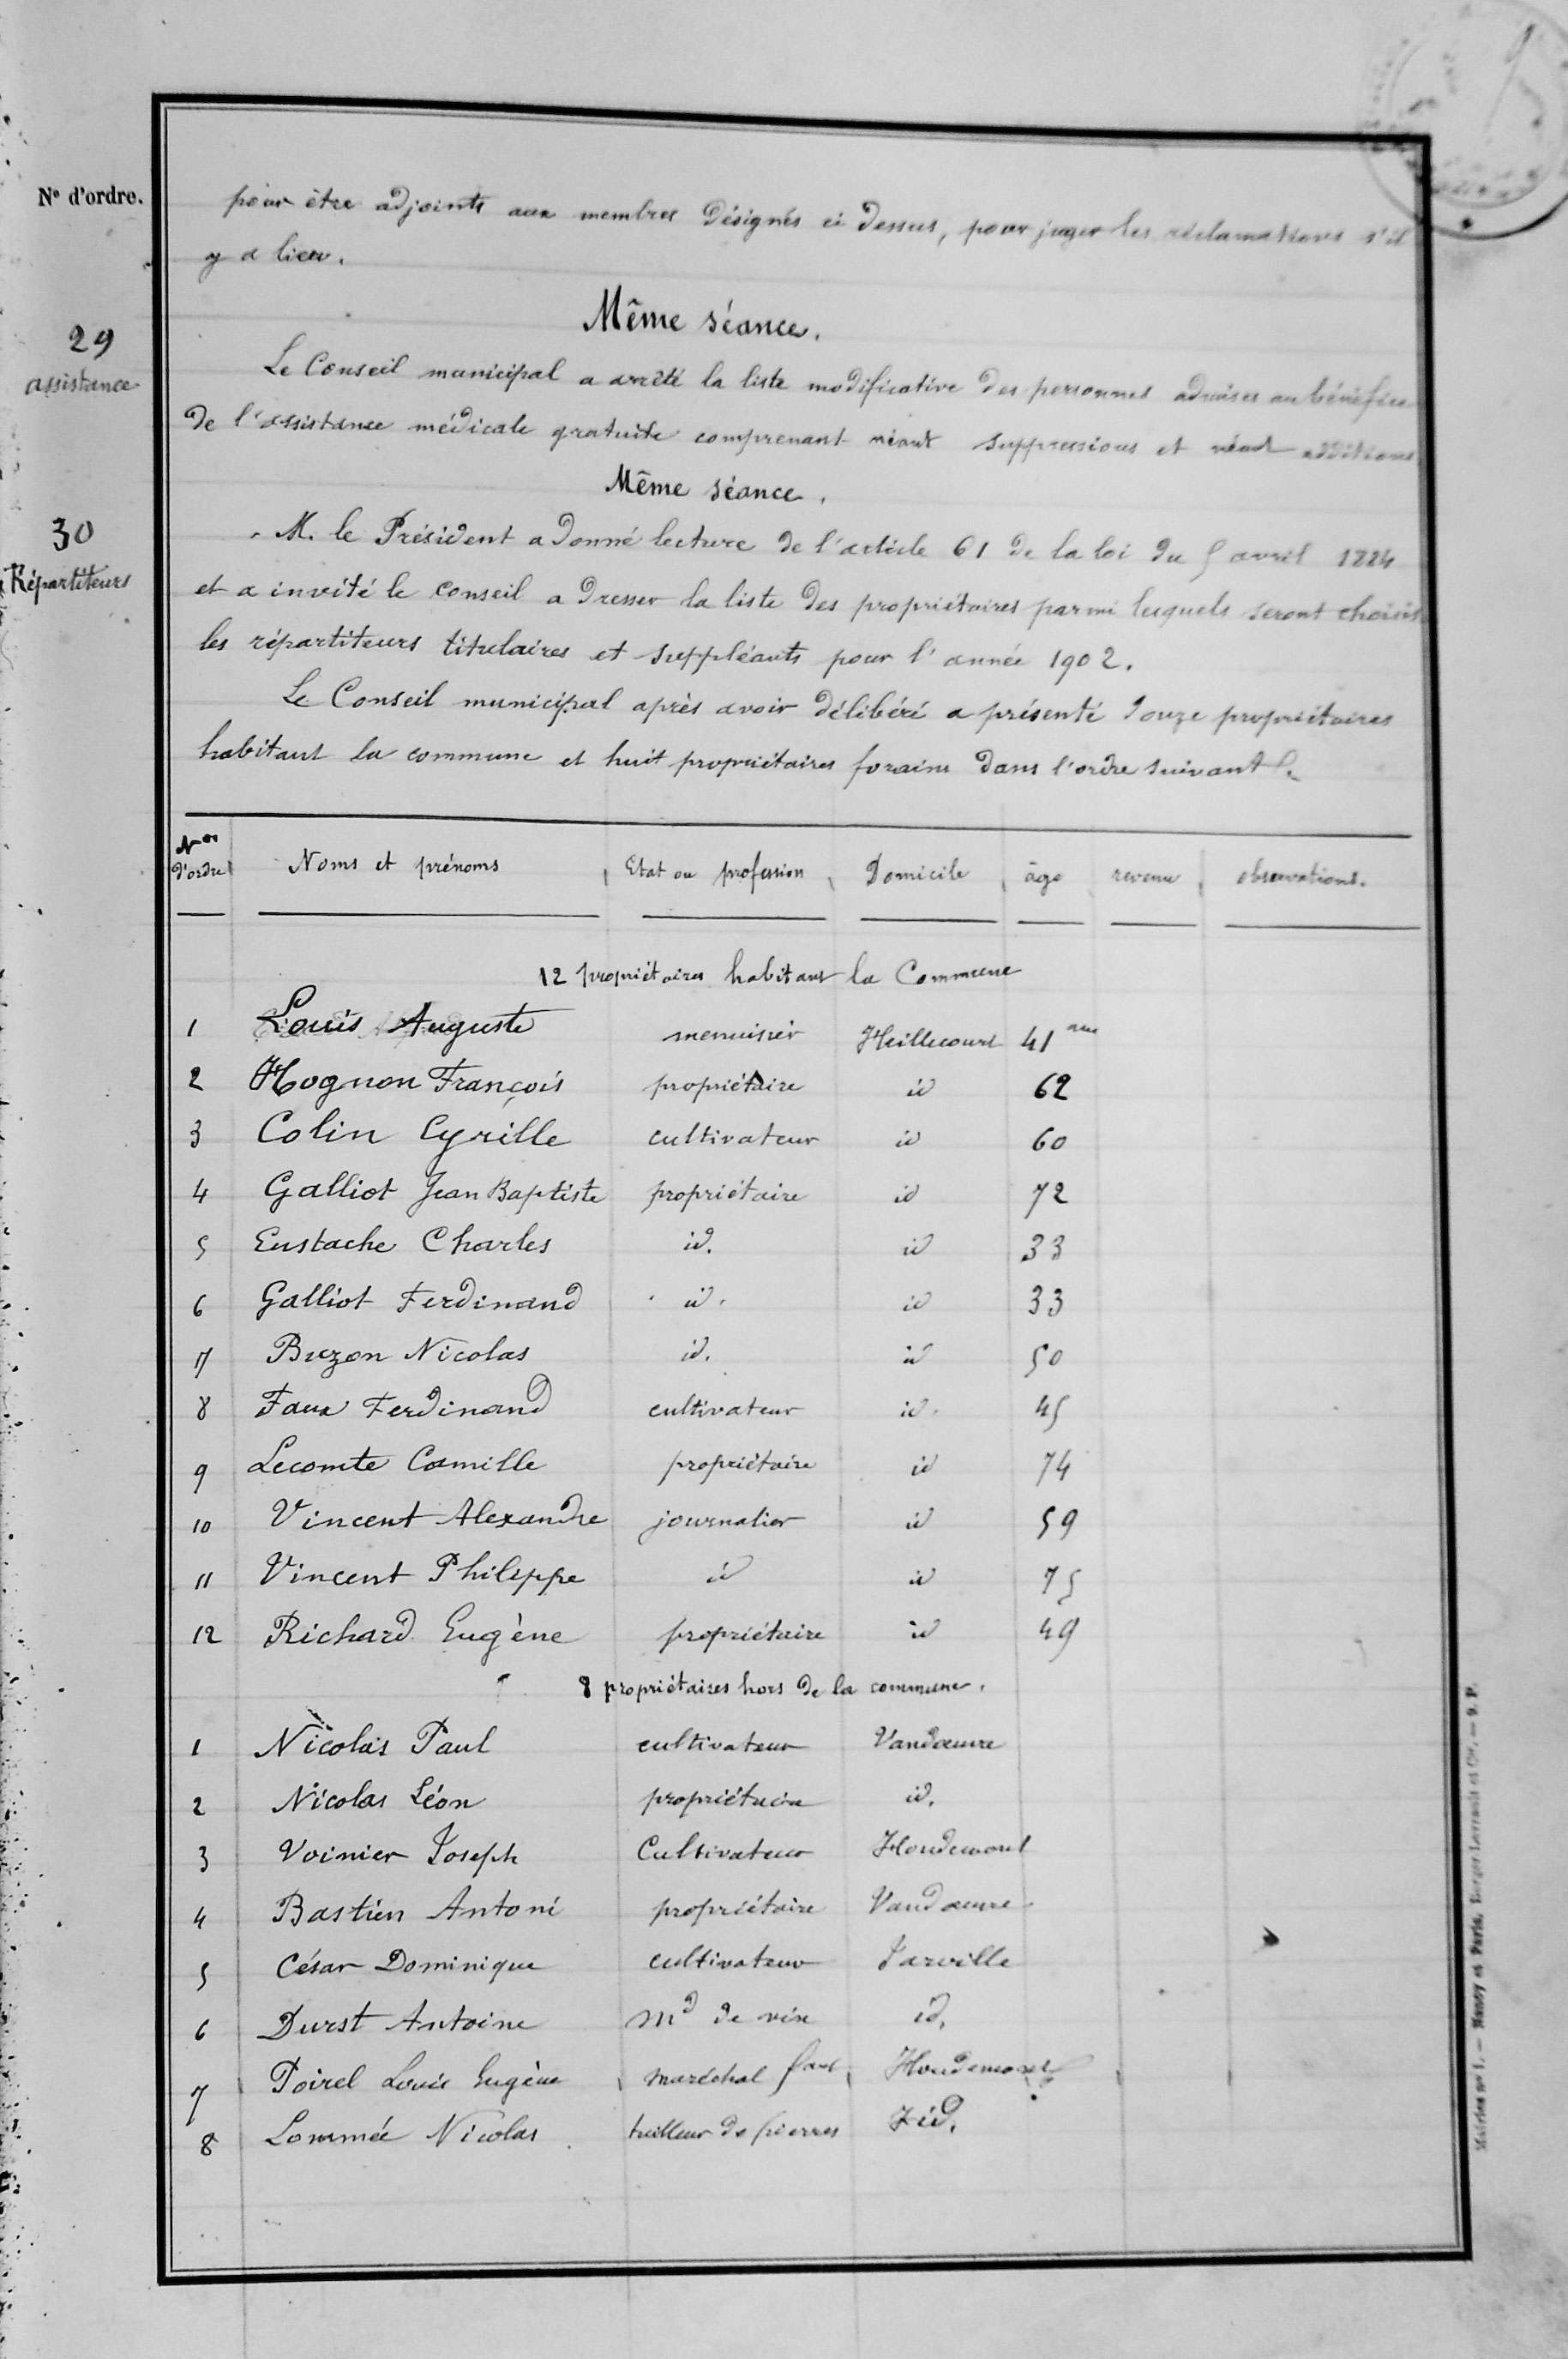 N° d'ordre.
pour être adjoints aux membres désignés ci dessus, pour juger les réclamations s'il
y a lieu.
Même séance.
29
assistance
Le Conseil municipal a arrêté la liste modificative des personnes admises au bénéfice
de l'assistance médicale gratuite comprenant néant suppressions et néant additions
Même séance.
30
Répartiteurs
M. le Président a donné lecture de l'article 61 de la loi du 5 avril 1884
et a invité le conseil a dresser la liste des propriétaires parmi lesquels seront choisis
les répartiteurs titulaires et suppléants pour l'année 1902.
Le Conseil municipal après avoir délibéré a présenté douze propriétaires
habitant la commune et huit propriétaires forains dans l'ordre suivant.
Nos d'ordre Noms et prénoms Etat ou profession Domicile âge revenu observations.
12 propriétaires habitant la Commune
1 Louis Auguste menuisier Heillecourt 41 ans
2 Hognon François propriétaire id 62
3 Colin Cyrille cultivateur id 60
4 Galliot Jean Baptiste propriétaire id 72
5 Eustache Charles id. id 33
6 Galliot Ferdinand id. id 33
7 Buzon Nicolas id. id 50
8 Faux Ferdinand cultivateur id. 45
9 Lecomte Camille propriétaire id 74
10 Vincent Alexandre journalier id 59
11 Vincent Philippe id id 75
12 Richard Eugène propriétaire id 49
8 propriétaires hors de la commune.
1 Nicolas Paul cultivateur Vandœuvre
2 Nicolas Léon propriétaire id.
3 Voinier Joseph Cultivateur Houdemont
4 Bastien Antoni propriétaire Vandœuvre
5 César Dominique cultivateur Jarville
6 Durst Antoine Md de vin id.
7 Poirel Louis Eugène maréchal fant Houdemont
8 Lommée Nicolas tailleur de pierres id.
Mairies n° 1. — Nancy et Paris. Berger-Levrault et Cie. — 9. P.